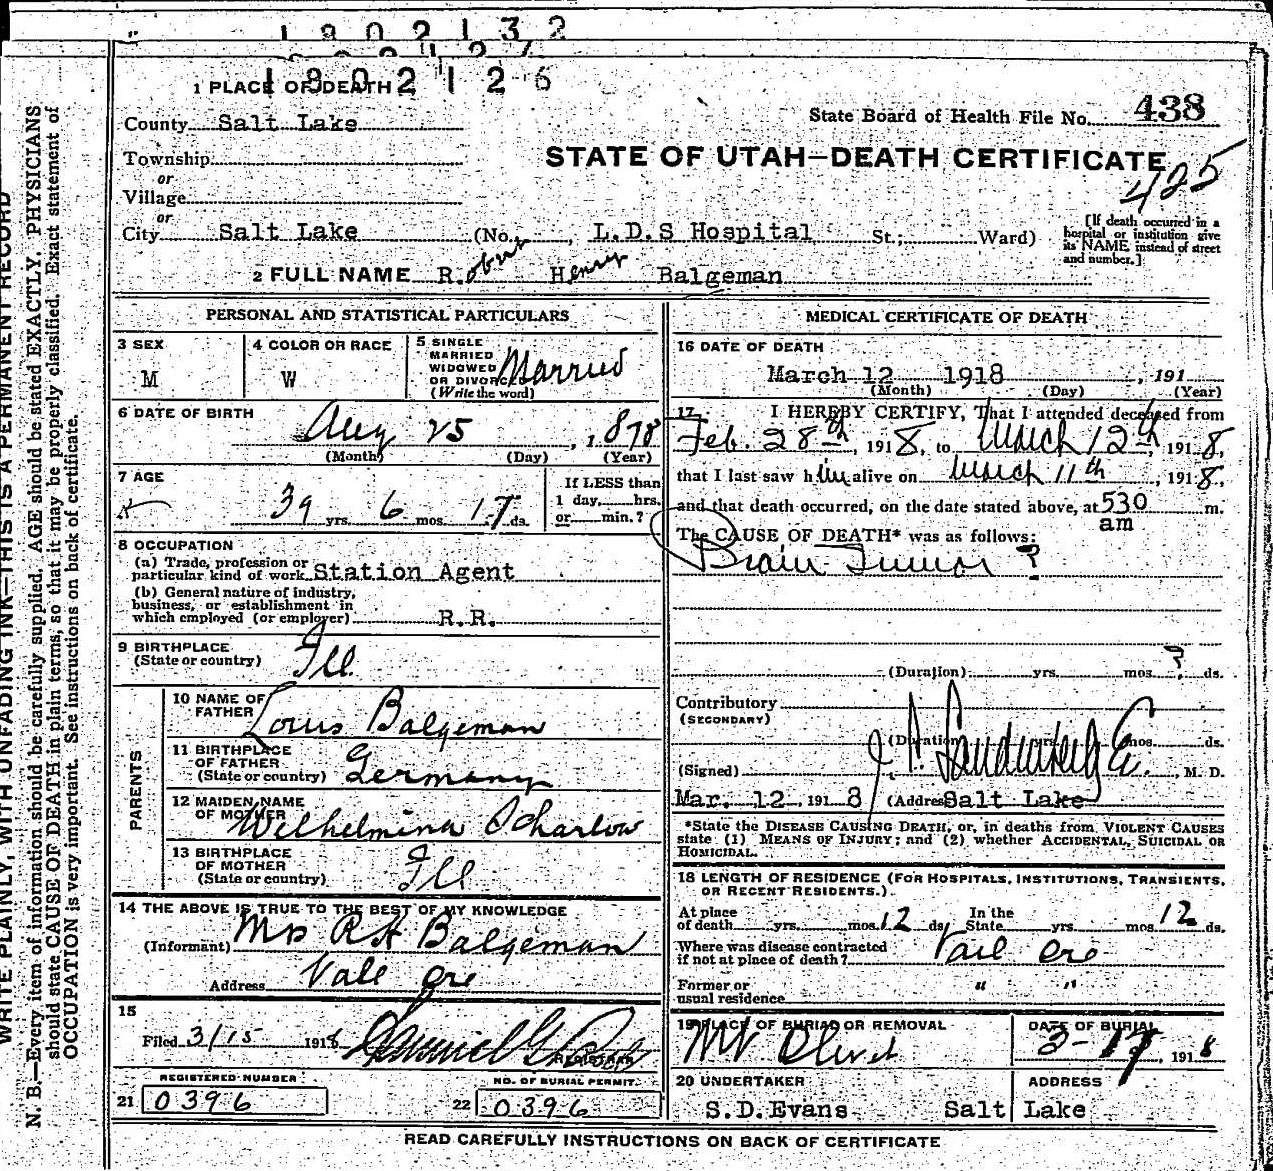 1902132
1902126
1 PLACE OF DEATH
County Salt Lake
Township
or
Village
or
City Salt Lake (No. , L.D.S Hospital St.; Ward)
State Board of Health File No. 438
STATE OF UTAH—DEATH CERTIFICATE
425
[If death occurred in a
hospital or institution give
its NAME instead of street
and number.]
2 FULL NAME Robert Henry Balgeman
PERSONAL AND STATISTICAL PARTICULARS
3 SEX
M
4 COLOR OR RACE
W
5 SINGLE
MARRIED
WIDOWED
OR DIVORCED
(Write the word)
Married
6 DATE OF BIRTH
Aug 25, 1878
(Month) (Day) (Year)
7 AGE
39 yrs. 6 mos. 17 ds.
If LESS than
1 day, hrs.
or min.?
8 OCCUPATION
(a) Trade, profession or
particular kind of work Station Agent
(b) General nature of industry,
business, or establishment in
which employed (or employer) R.R.
9 BIRTHPLACE
(State or country) Ill
PARENTS
10 NAME OF
FATHER Louis Balgeman
11 BIRTHPLACE
OF FATHER
(State or country) Germany
12 MAIDEN NAME
OF MOTHER Wilhelmina Scharlow
13 BIRTHPLACE
OF MOTHER
(State or country) Ill
14 THE ABOVE IS TRUE TO THE BEST OF MY KNOWLEDGE
(Informant) Mrs R H Balgeman
Address Vale Ore
15
Filed 3/15 1918
REGISTRAR
REGISTERED NUMBER
21 0396
NO. OF BURIAL PERMIT
22 0396
MEDICAL CERTIFICATE OF DEATH
16 DATE OF DEATH
March 12 1918, 191
(Month) (Day) (Year)
17 I HEREBY CERTIFY, That I attended deceased from
Feb. 28th, 1918, to March 12th, 1918,
that I last saw him alive on March 11th, 1918,
and that death occurred, on the date stated above, at 530 m.
am
The CAUSE OF DEATH* was as follows:
Brain Tumor ?
(Duration) yrs. mos. ? ds.
Contributory
(SECONDARY)
(Duration) yrs. mos. ds.
(Signed) , M. D.
Mar. 12, 1918 (Address Salt Lake
*State the DISEASE CAUSING DEATH, or, in deaths from VIOLENT CAUSES
state (1) MEANS OF INJURY; and (2) whether ACCIDENTAL, SUICIDAL OR
HOMICIDAL.
18 LENGTH OF RESIDENCE (FOR HOSPITALS, INSTITUTIONS, TRANSIENTS,
OR RECENT RESIDENTS.)
At place
of death yrs. mos. 12 ds.
In the
State yrs. mos. 12 ds.
Where was disease contracted
if not at place of death? Vail Ore
Former or
usual residence " "
19 PLACE OF BURIAL OR REMOVAL
Mt Olivet
DATE OF BURIAL
3-17, 1918
20 UNDERTAKER
S.D.Evans
ADDRESS
Salt Lake
READ CAREFULLY INSTRUCTIONS ON BACK OF CERTIFICATE
WRITE PLAINLY, WITH UNFADING INK—THIS IS A PERMANENT RECORD
N. B.—Every item of information should be carefully supplied. AGE should be stated EXACTLY. PHYSICIANS
should state CAUSE OF DEATH in plain terms, so that it may be properly classified. Exact statement of
OCCUPATION is very important. See instructions on back of certificate.